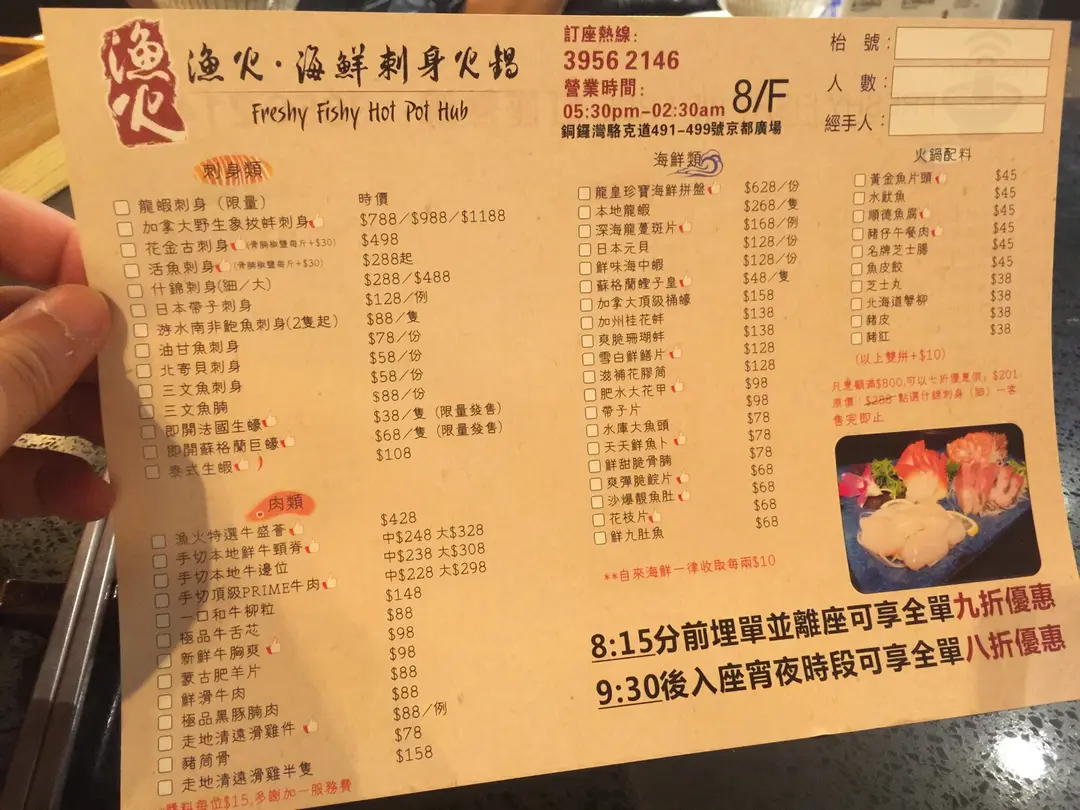 漁火
漁火·海鮮刺身火鍋
Freshy Fishy Hot Pot Hub
訂座熱線:
3956 2146
營業時間:
05:30pm-02:30am
8/F
銅鑼灣駱克道491-499號京都廣場
枱 號:
人 數:
經手人:
刺身類
龍蝦刺身 (限量) 時價
加拿大野生象拔蚌刺身 $788/$988/$1188
花金古刺身 (骨腩椒鹽每斤+$30) $498
活魚刺身 (骨腩椒鹽每斤+$30) $288起
什錦刺身(細/大) $288/$488
日本帶子刺身 $128/例
游水南非鮑魚刺身(2隻起) $88/隻
油甘魚刺身 $78/份
北寄貝刺身 $58/份
三文魚刺身 $58/份
三文魚腩 $88/份
即開法國生蠔 $38/隻 (限量發售)
即開蘇格蘭巨蠔 $68/隻 (限量發售)
泰式生蝦 $108
肉類
漁火特選牛盛薈 $428
手切本地鮮牛頸脊 中$248 大$328
手切本地牛邊位 中$238 大$308
手切頂級PRIME牛肉 中$228 大$298
一口和牛柳粒 $148
極品牛舌芯 $88
新鮮牛胸爽 $98
蒙古肥羊片 $98
鮮滑牛肉 $88
極品黑豚腩肉 $88
走地清遠滑雞件 $88/例
豬筒骨 $78
走地清遠滑雞半隻 $158
醬料每位$15,多謝加一服務費
海鮮類
龍皇珍寶海鮮拼盤 $628/份
本地龍蝦 $268/隻
深海龍躉斑片 $168/例
日本元貝 $128/份
鮮味海中蝦 $128/份
蘇格蘭蟶子皇 $48/隻
加拿大頂級桶蠔 $158
加州桂花蚌 $138
爽脆珊瑚蚌 $138
雪白鮮鱔片 $128
滋補花膠筒 $128
肥水大花甲 $98
帶子片 $98
水庫大魚頭 $78
天天鮮魚卜 $78
鮮甜脆骨腩 $78
爽彈脆鯇片 $68
沙爆靚魚肚 $68
花枝片 $68
鮮九肚魚 $68
**自來海鮮一律收取每兩$10
火鍋配料
黃金魚片頭 $45
水魷魚 $45
順德魚腐 $45
豬仔午餐肉 $45
名牌芝士腸 $45
魚皮餃 $45
芝士丸 $38
北海道蟹柳 $38
豬皮 $38
豬紅 $38
(以上雙拼+$10)
凡惠顧滿$800,可以七折優惠價, $201
原價: $288 點選什錦刺身 (細) 一客
售完即止
8:15分前埋單並離座可享全單九折優惠
9:30後入座宵夜時段可享全單八折優惠